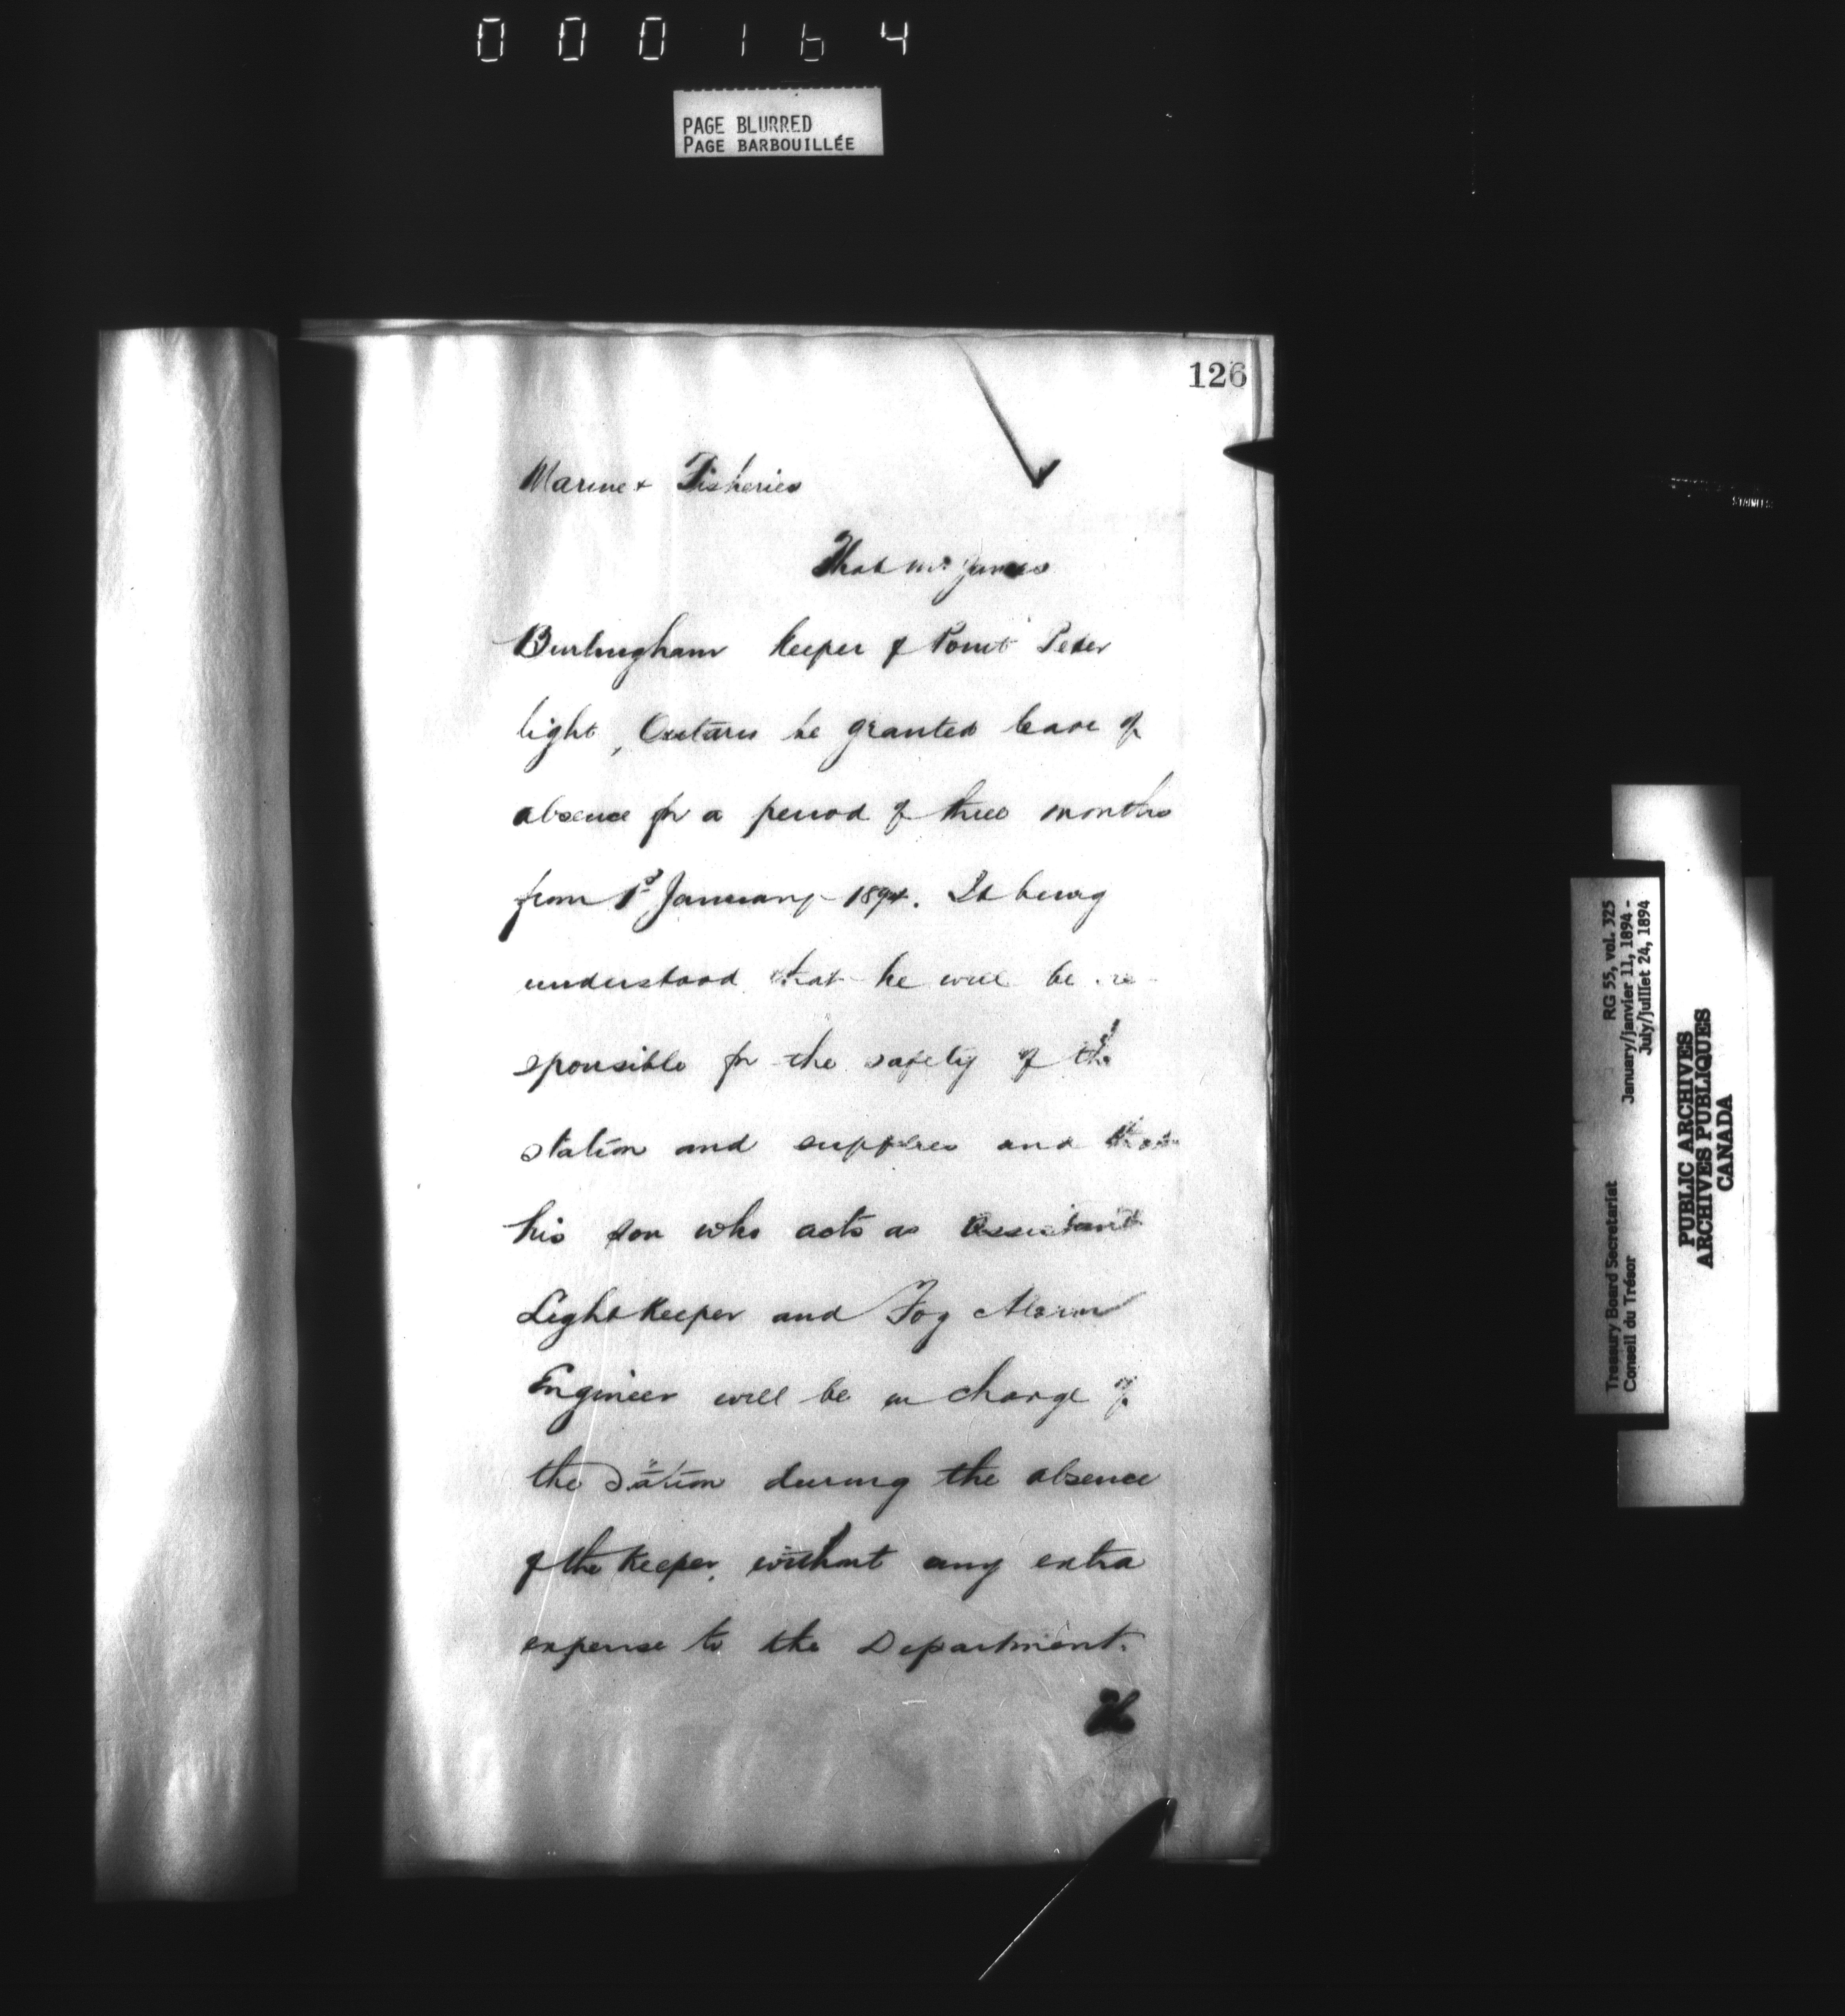 000164
PAGE BLURRED
PAGE BARBOUILLÉE
126
Marine & Fisheries
That Mr James
Burlingham Keeper of Point Peter
light, Ontario be granted leave of
absence for a period of three months
from 1st January 1894. It being
understood that he will be re-
sponsible for the safety of the
station and supplies and that
his son who acts as Assistant
Lightkeeper and Fog Alarm
Engineer will be in charge of
the Station during the absence
of the Keeper, without any extra
expense to the Department.
Treasury Board Secretariat RG 55, vol. 325
Conseil du Trésor January/janvier 11, 1894 -
July/juillet 24, 1894
PUBLIC ARCHIVES
ARCHIVES PUBLIQUES
CANADA